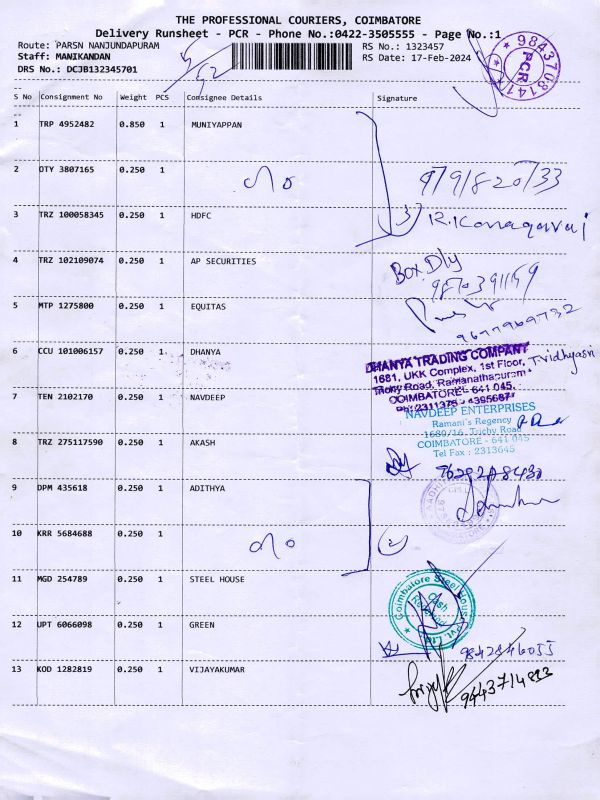 THE PROFESSIONAL COURIERS, COIMBATORE
Delivery Runsheet - PCR - Phone No.:0422-3505555 - Page No.:1
Route: PARSN NANJUNDAPURAM
RS No.: 1323457
Staff: MANIKANDAN
RS Date: 17-Feb-2024
DRS No.: DCJB132345701
9843708141
PCR
S No Consignment No Weight PCS Consignee Details Signature
1 TRP 4952482 0.850 1 MUNIYAPPAN
2 DTY 3807165 0.250 1
3 TRZ 100058345 0.250 1 HDFC
(3) R.Kanagavni
4 TRZ 102109074 0.250 1 AP SECURITIES
Box.Dly
5 MTP 1275800 0.250 1 EQUITAS
6 CCU 101006157 0.250 1 DHANYA
DHANYA TRADING COMPANY
1681, UKK Complex, 1st Floor,
Trichy Road, Ramanathapuram
COIMBATORE - 641 045.
T.vidhyasri
7 TEN 2102170 0.250 1 NAVDEEP
NAVDEEP ENTERPRISES
Ramani's Regency
1680/16, Trichy Road
COIMBATORE - 641 045
Tel Fax : 2313645
8 TRZ 275117590 0.250 1 AKASH
9 DPM 435618 0.250 1 ADITHYA
10 KRR 5684688 0.250 1
(2)
11 MGD 254789 0.250 1 STEEL HOUSE
Coimbatore Steel House Pvt. Ltd
Cash
Received
12 UPT 6066098 0.250 1 GREEN
9842846055
13 KOD 1282819 0.250 1 VIJAYAKUMAR